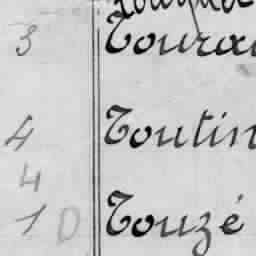 3 Toura
4 Toutin
4
1 D Touzé